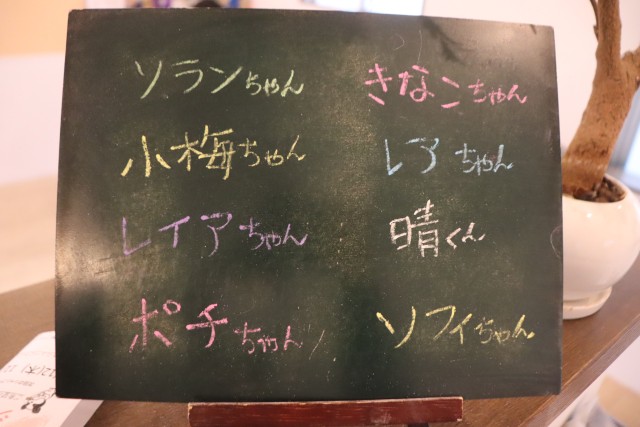 ソランちゃん
きなこちゃん
小梅ちゃん
レアちゃん
レイアちゃん
晴くん
ポチちゃん
ソフィちゃん